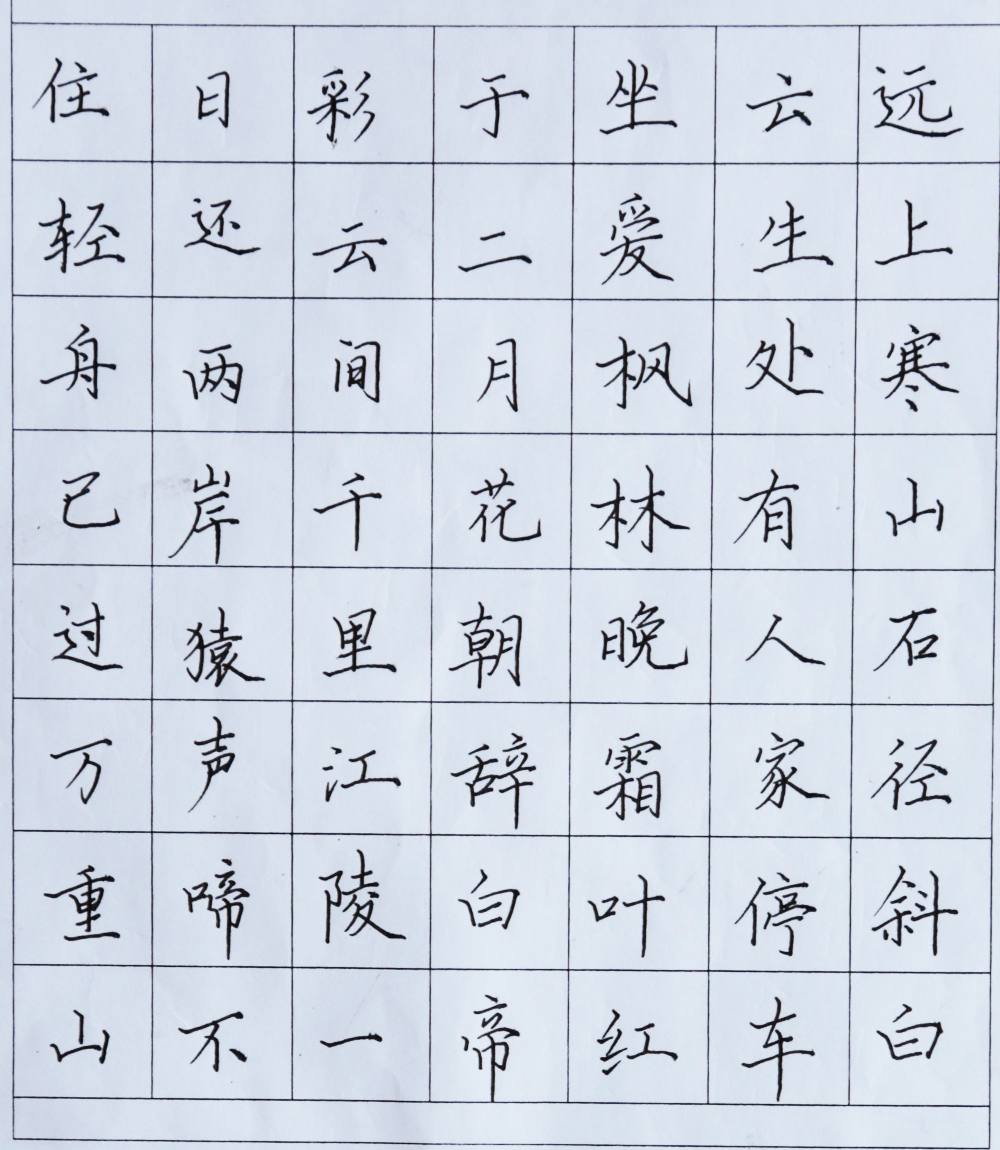 远上寒山石径斜白
云生处有人家停车
坐爱枫林晚霜叶红
于二月花朝辞白帝
彩云间千里江陵一
日还两岸猿声啼不
住轻舟已过万重山